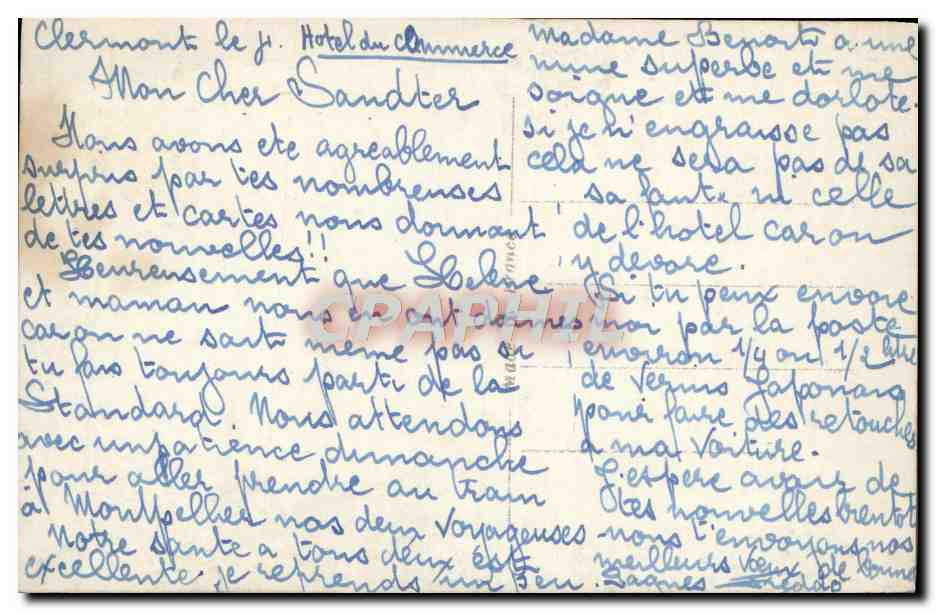 Clermont le j. Hotel du Commerce
Mon Cher Sandter
Nous avons ete agreablement
surpris par tes nombreuses
lettres et cartes nous donnant
de tes nouvelles!!
Heureusement que Helene
et maman nous en ont donnes
car on ne sait meme pas si
tu fais toujours parti de la
Standard. Nous attendons
avec impatience dimanche
pour aller prendre au train
à Montpellier nos deux voyageuses
Notre sante a tous deux est
excellente. je reprends un peu.
madame Benoit a une
mine superbe et me
soigne et me dorlote.
si je n'engraisse pas
cela ne sera pas de sa
faute ni celle
de l'hotel car on
y devore.
Si tu peux envoie
moi par la poste
environ 1/4 ou 1/2 litre
de vernis Japonais
pour faire des retouches
a ma voiture.
J'espere avoir de
tes nouvelles bientot
nous t'envoyons nos
meilleurs Vœux de bonne
CPAPHIL